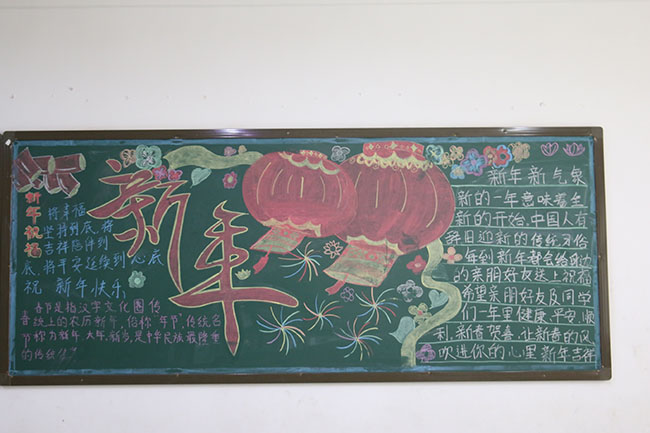 新年祝福
将幸福
坚持到底,将
吉祥陪伴到
底,将平安延续到心底
祝 新年快乐
春节是指汉字文化圈传
统上的农历新年,俗称"年节",传统名
节称为新年、大年、新岁,是中华民族最隆重
的传统佳节
新年
新年新气象
新的一年意味着全
新的开始,中国人有
辞旧迎新的传统习俗
每到新年都会给身边
的亲朋好友送上祝福
希望亲朋好友及同学
们一年里健康平安顺
利,新春贺喜,让新春的风
吹进你的心里 新年吉祥